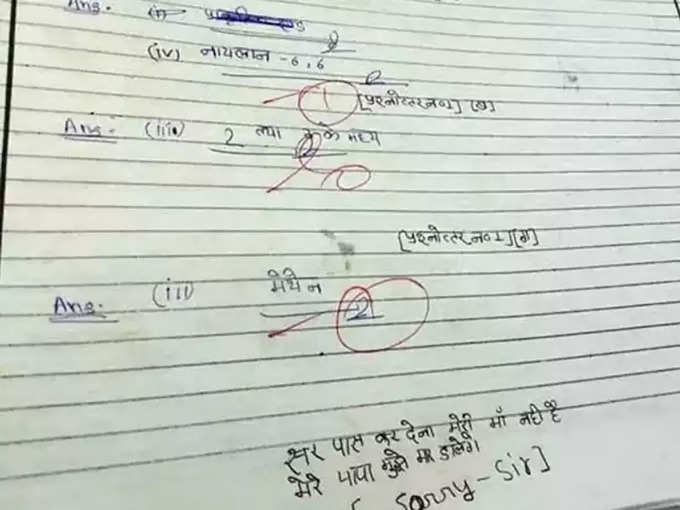 Ans. (i)
(iv) नायलान - 6,6
1 [प्रश्नोत्तर नं०1] (ख)
Ans. (iii) 2 तथा के मध्य
0
[प्रश्नोत्तर नं०1] (ग)
Ans. (iii) मेथेन - 2
सर पास कर देना मेरी माँ नहीं है
मेरे पापा मुझे मार डालेंगे
[Sorry - Sir]